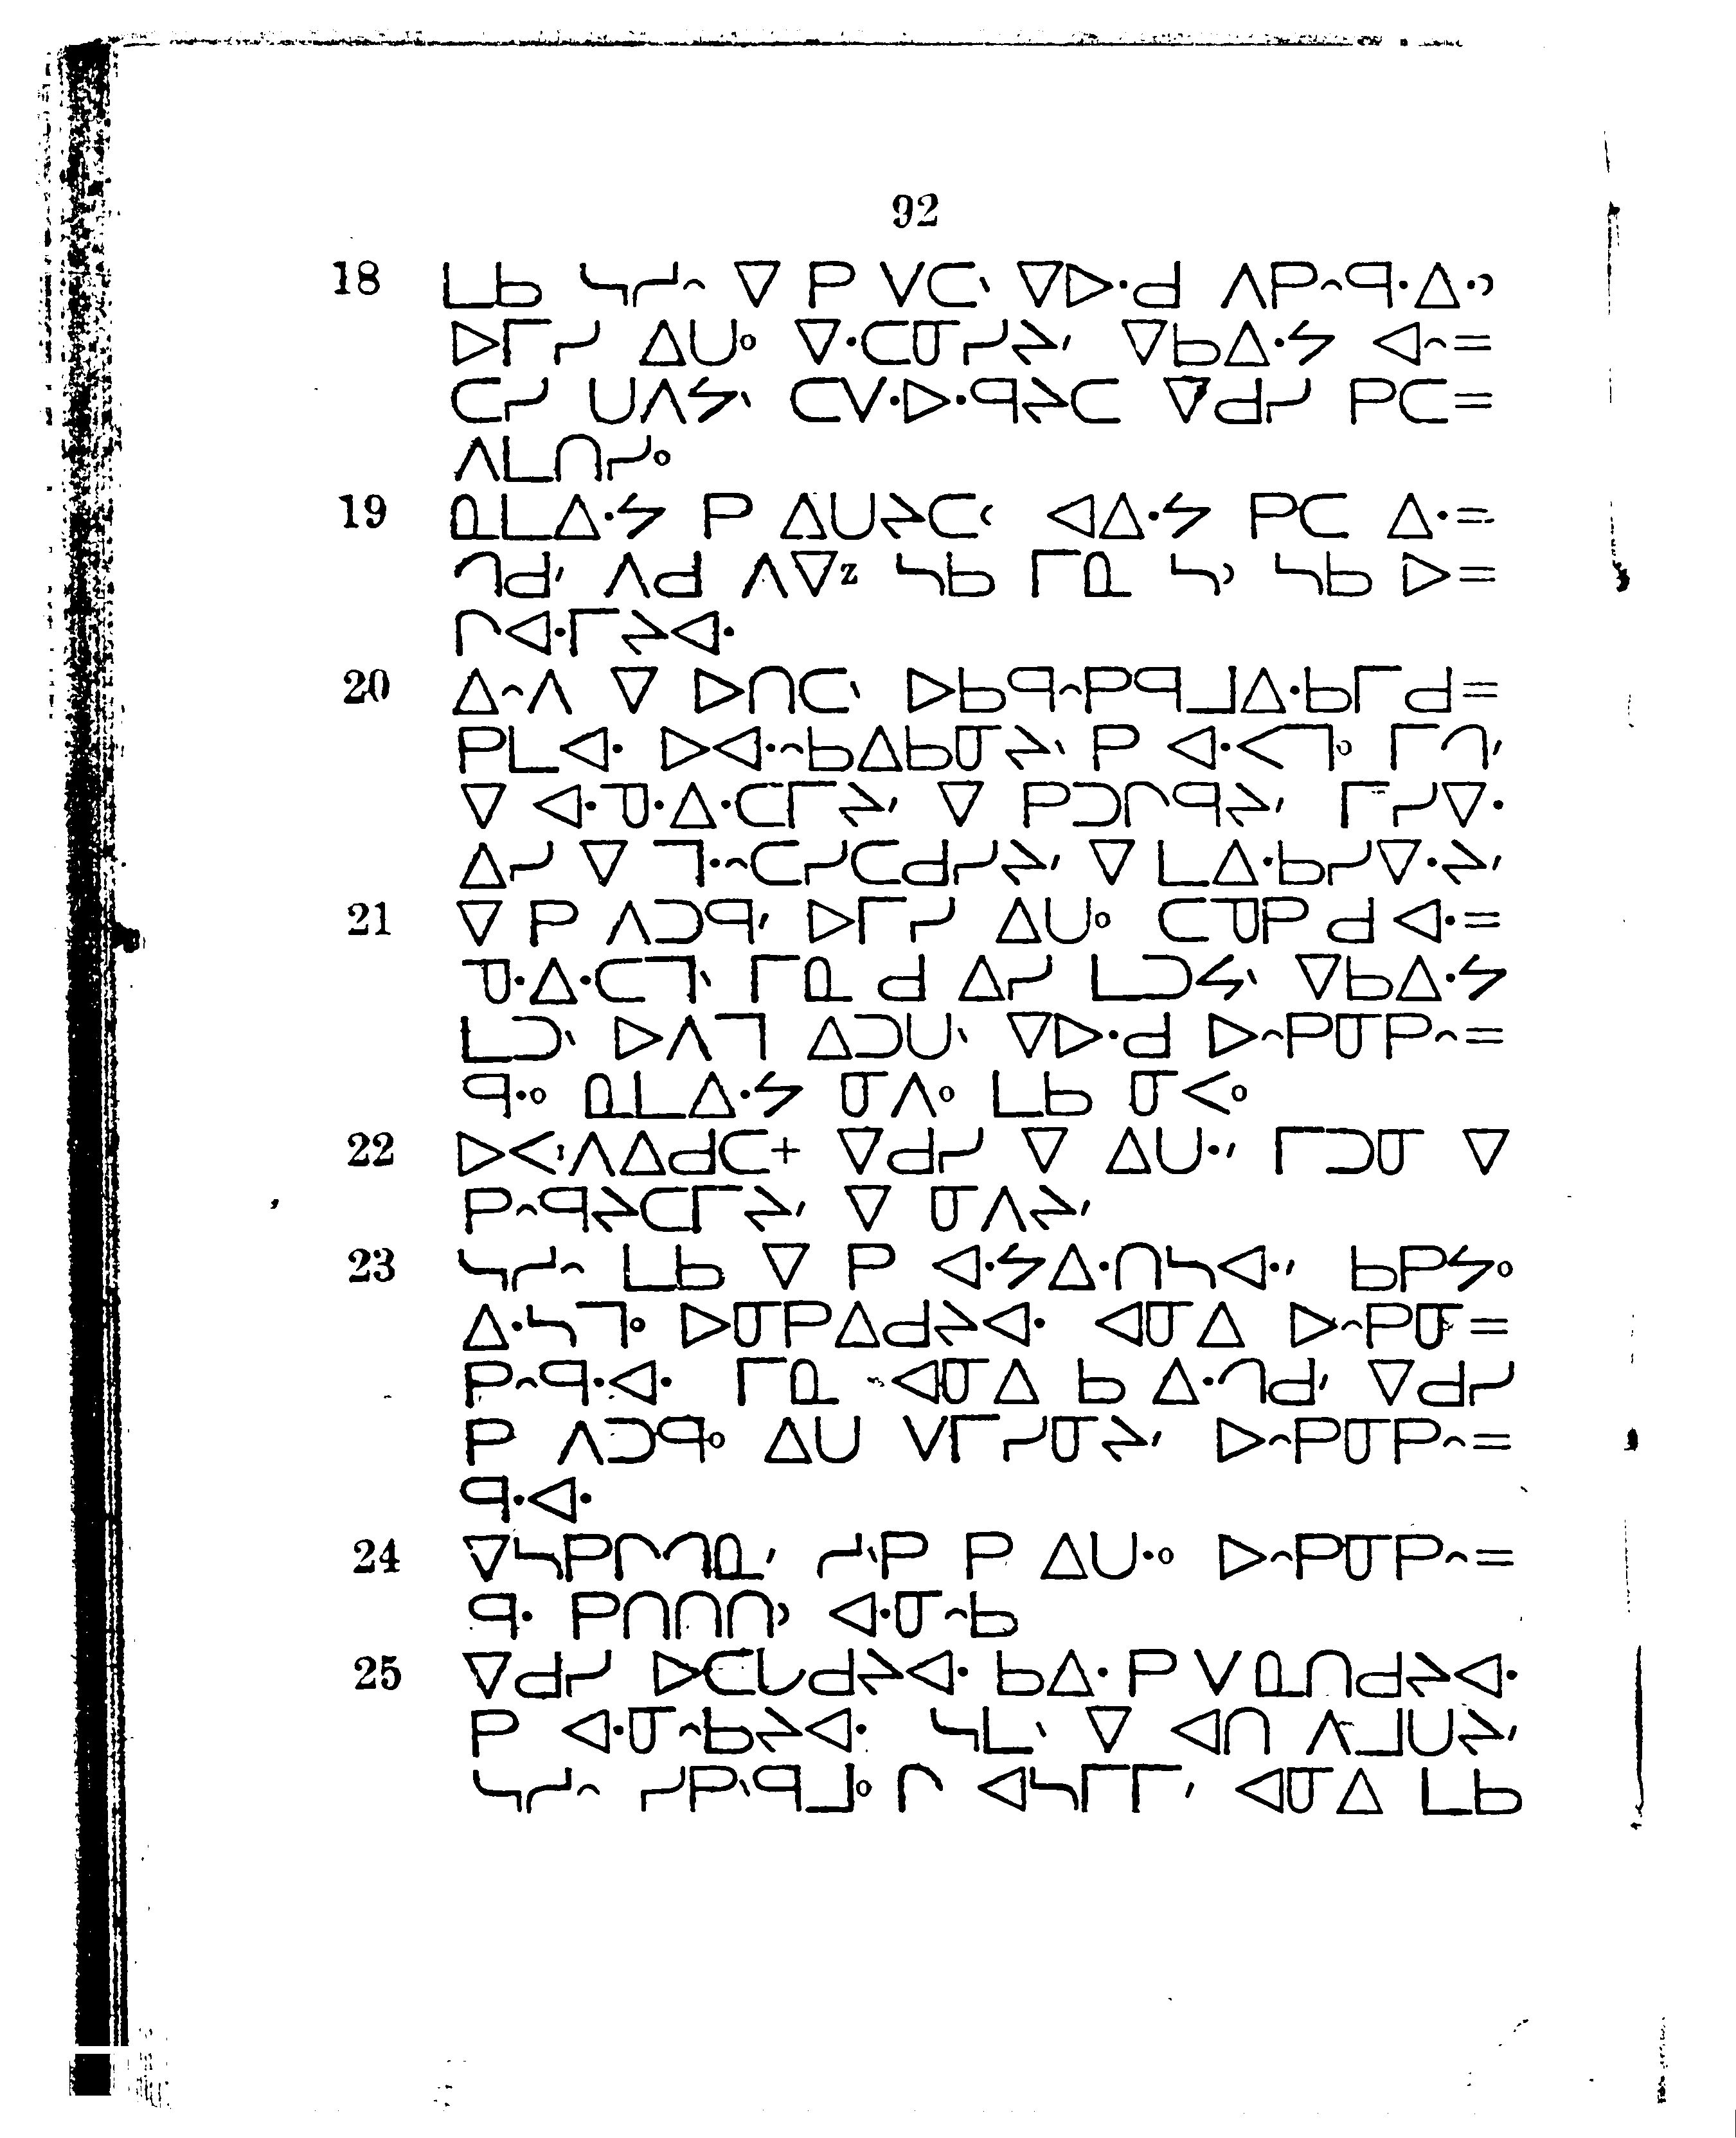 92
18 ᒪᑲ ᓴᓯᐢ ᐁ ᑭ ᐯᑕᐠ ᐁᐅᐧᑯ ᐱᑭᐢᑫᐧᐃᐧᐣ
ᐅᒥᓯ ᐃᑌᐤ ᐁᐧᑕᓂᓯᔨᐟ ᐁᑲᐃᐧᔭ ᐊᐢ=
ᑕᓯ ᑌᐱᔭᐠ ᑕᐯᐧᐅᐧᑫᔨᑕ ᐁᑯᓯ ᑭᑕ=
ᐱᒪᑎᓯᐤ
19 ᓇᒪᐃᐧᔭ ᑭ ᐃᑌᔨᑕᑉ ᐊᐃᐧᔭ ᑭᑕ ᐃᐧ=
ᒋᑯᐟ ᐱᑯ ᐱᐁᶻ ᓴᑲ ᒥᓇ ᓴᐣ ᓴᑲ ᐅ=
ᒋᐊᐧᒥᔨᐊᐧ
20 ᐃᐢᐱ ᐁ ᐅᑎᑕᐠ ᐅᑲᑫᐢᑭᑫᒧᐃᐧᑲᒥᑯ=
ᑭᒪᐊᐧ ᐅᐊᐧᐢᑲᐃᑲᓂᔨᐠ ᑭ ᐊᐧᐸᒣᐤ ᒥᒋᐟ
ᐁ ᐊᐧᓀᐧᐃᐧᑕᒥᔨᐟ ᐁ ᑭᑐᒋᑫᔨᐟ ᒥᓯᐁᐧ
ᐃᓯ ᐁ ᒣᐧᐢᑕᓯᑕᑯᓯᔨᐟ ᐁ ᒪᐃᐧᑲᓯᐁᐧᔨᐟ
21 ᐁ ᑭ ᐱᑐᑫᐟ ᐅᒥᓯ ᐃᑌᐤ ᑕᓀᑭ ᑯ ᐊᐧ=
ᓀᐧᐃᐧᑕᒣᐠ ᒥᓇ ᑯ ᐃᓯ ᒪᑐᔦᐠ ᐁᑲᐃᐧᔭ
ᒪᑐᐠ ᐅᐱᒣ ᐃᑐᑌᐠ ᐁᐅᐧᑯ ᐅᐢᑭᓂᑭᐢ=
ᑫᐧᐤ ᓇᒪᐃᐧᔭ ᓂᐱᐤ ᒪᑲ ᓂᐸᐤ
22 ᐅᐸᐦᐱᐃᑯᑕᐩ ᐁᑯᓯ ᐁ ᐃᑌᐧᐟ ᒥᑐᓂ ᐁ
ᑭᐢᑫᔨᑕᒥᔨᐟ ᐁ ᓂᐱᔨᐟ
23 ᓴᓯᐢ ᒪᑲ ᐁ ᑭ ᐊᐧᔭᐃᐧᑎᓴᐊᐧᐟ ᑲᑭᔭᐤ
ᐃᐧᓴᒣᐤ ᐅᓂᑭᐃᑯᔨᐊᐧ ᐊᓂᐃ ᐅᐢᑭᓂ=
ᑭᐢᑫᐧᐊᐧ ᒥᓇ ᐊᓂᐃ ᑲ ᐃᐧᒋᑯᐟ ᐁᑯᓯ
ᑭ ᐱᑐᑫᐤ ᐃᑌ ᐯᒥᓯᓂᔨᐟ ᐅᐢᑭᓂᑭᐢ=
ᑫᐧᐊᐧ
24 ᐁᓴᑭᒋᒋᓇᐟ ᓯᐠᑭ ᑭ ᐃᑌᐧᐤ ᐅᐢᑭᓂᑭᐢ=
ᑫᐧ ᑭᑎᑎᑎᐣ ᐊᐧᓂᐢᑲ
25 ᐁᑯᓯ ᐅᑕᒐᑯᔨᐊᐧ ᑲᐃᐧ ᑭ ᐯ ᓇᑎᑯᔨᐊᐧ
ᑭ ᐊᐧᓂᐢᑲᔨᐊᐧ ᓴᒪᐠ ᐁ ᐊᑎ ᐱᒧᑌᔨᐟ
ᓴᓯᐢ ᓯᑭᐠᑫᒧᐤ ᒋ ᐊᓴᒥᒥᐟ ᐊᓂᐃ ᒪᑲ